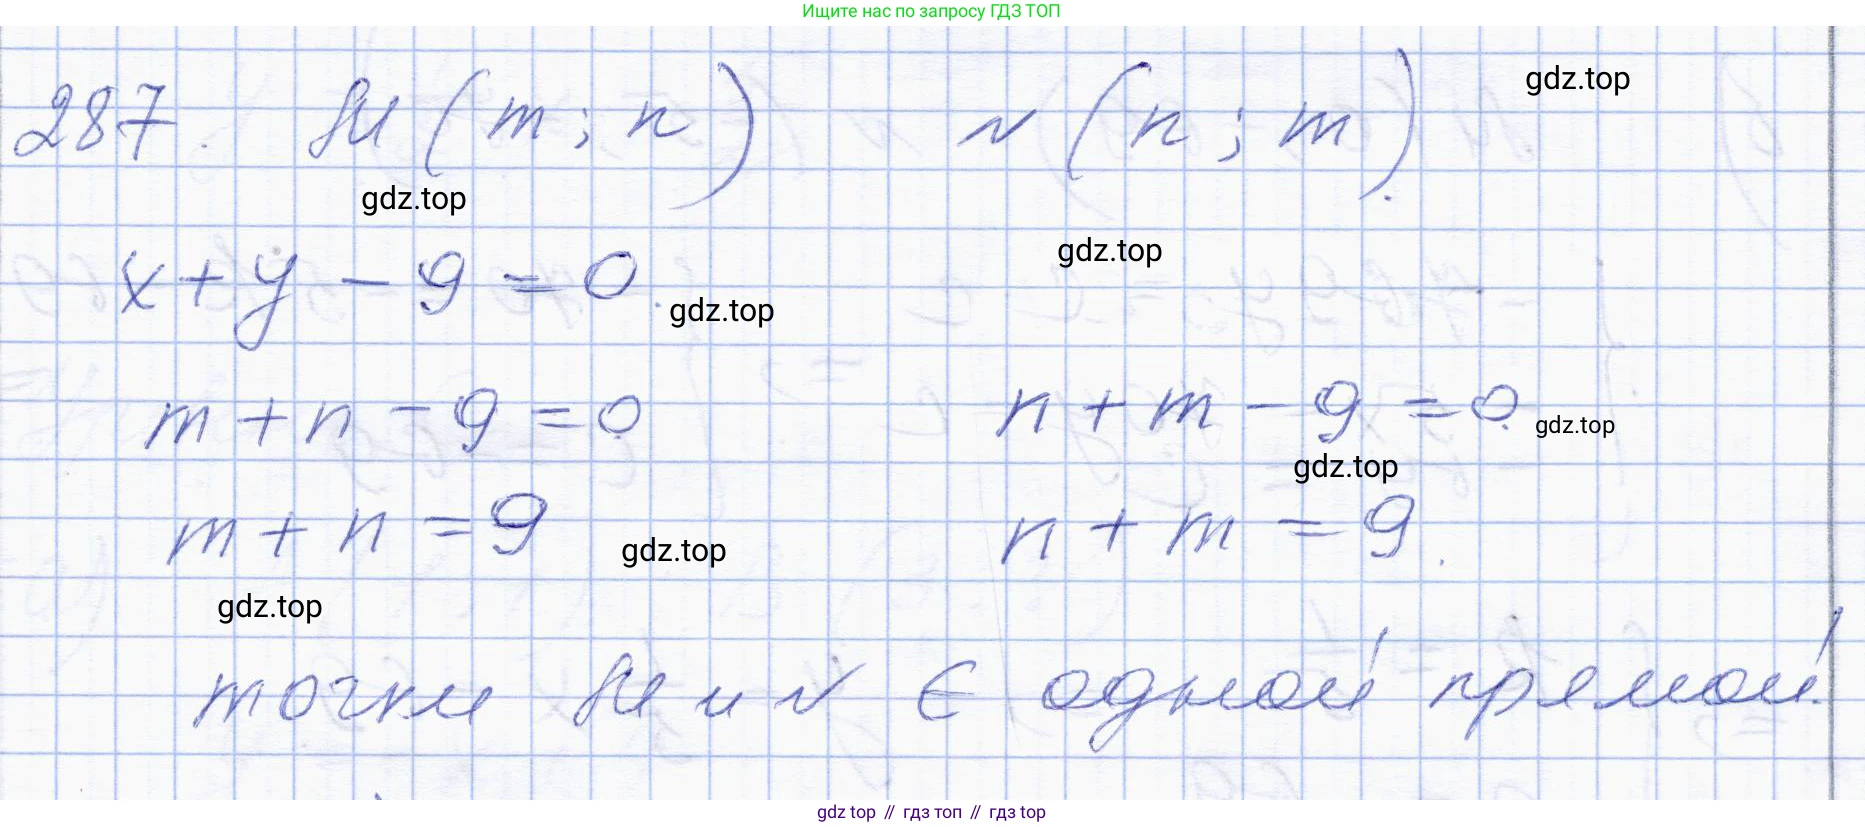 Ищите нас по запросу ГДЗ ТОП
287. M(m; n) N(n; m).
gdz.top
gdz.top
x + y - 9 = 0.
gdz.top
gdz.top
m + n - 9 = 0. n + m - 9 = 0.
gdz.top
gdz.top
m + n = 9 n + m = 9.
gdz.top
gdz.top
точки M и N ∈ одной прямой.
gdz top // гдз топ // gdz top